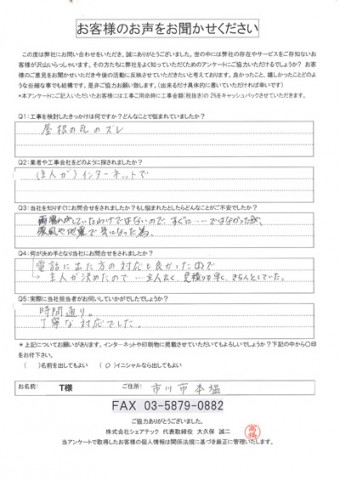 お客様のお声をお聞かせください
この度は弊社にお問い合わせをいただき、誠にありがとうございました。世の中には弊社の存在やサービスをご存知ないお
客様が沢山いらっしゃいます。その方たちに弊社をよく知っていただくためのアンケートにご協力いただけるでしょうか？お客
様のご意見をお聞かせいただき今後の活動に反映させていただきたいと考えております。良かったこと、嬉しかったことどのよ
うな些細な事でも結構です。是非ご協力お願い致します。（出来るだけ具体的に書いていただければ幸いです）
*本アンケートにご記入いただいたお客様には工事ご用命時に工事金額（税抜き）の2%をキャッシュバックさせていただきます。
Q1：工事を検討したきっかけは何ですか？どんなことで悩まれていましたか？
屋根の瓦のズレ
Q2：業者や工事会社をどのように探されましたか？
（主人が）インターネットで
Q3：当社を知りすぐにお問合せをされましたか？もし悩まれたとしたらどんなことがご不安でしたか？
雨漏りがしていたわけではないので、すぐに…ではなかったが、
強風や地震で気になった為。
Q4：何が決め手となり当社にお問合せをされましたか？
電話に出た方の対応も良かったので
→主人が決めたので…主人曰く、見積りも早く、きちんとしていた。
Q5：実際に当社担当者がお伺いしていかがでしたでしょうか？
時間通り。
丁寧な対応でした。
＊上記についてお願いがあります。インターネットや印刷物に掲載させていただいてもよろしいでしょうか？下記の中から〇印
をお付け下さい。
（　）名前を出してもよい　（〇）イニシャルなら出してもよい
お名前：　T様　ご住所：　市川市本塩
FAX 03-5879-0882
ご協力ありがとうございました。
株式会社シェアテック　代表取締役　大久保　誠二
当アンケートで取得したお客様の個人情報は関係法規に基づき厳正に管理いたします。